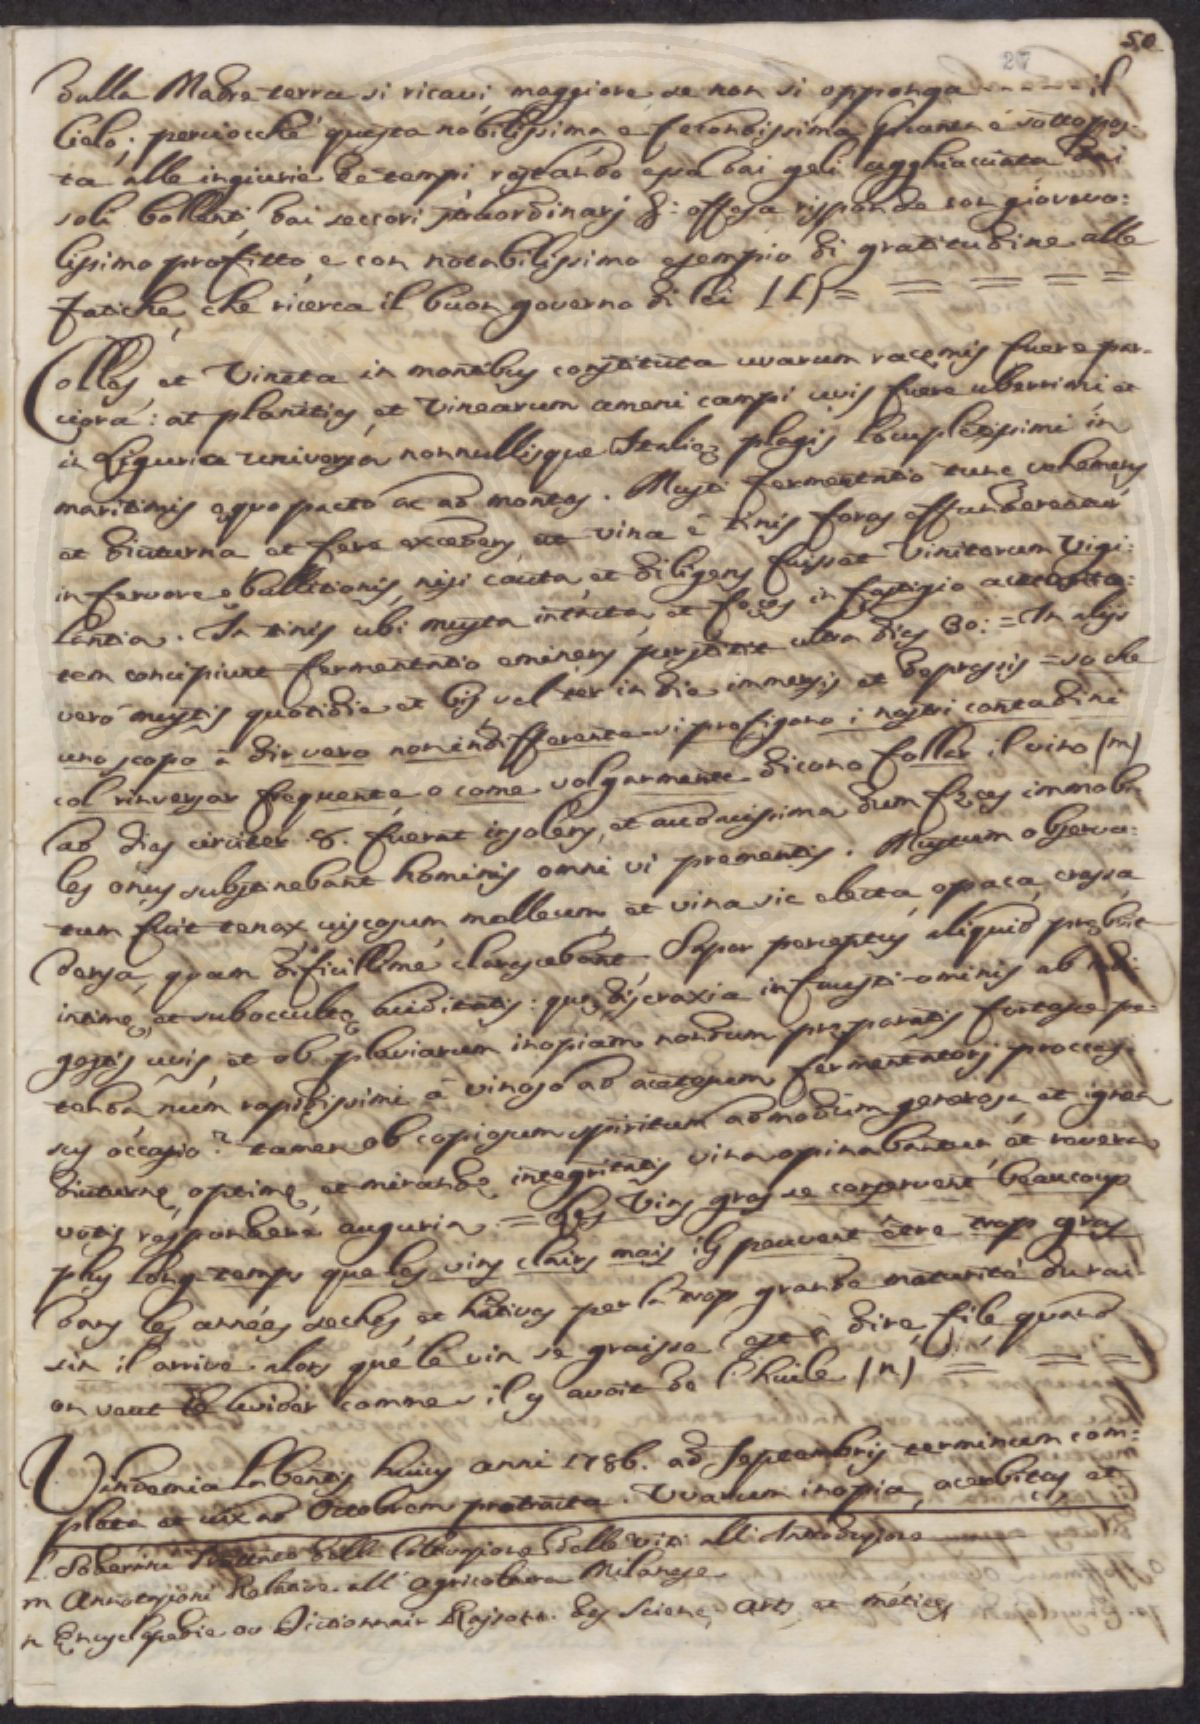 50
27
dalla Madre terra si ricavi maggiore, se non si opponga - - - - il
Cielo; perciocchè questa nobilissima e fecondissima pianta è sottopos-
ta alle ingiurie de tempi restando essa dai geli agghiacciata dai
soli bollenti, dai seccori straordinarj &: offesa risponde con giovevo:
lissimo profitto, e con notabilissimo esempio di gratitudine alle
fatiche, che ricerca il buon governo di lei (l) = = = = = =
Colles, et Vineta in montibus constituta uvarum racemis fuere par-
ciora: at planities, et Vinearum ameni campi uvis fuere uberrimi, et
in Liguria universa nonnullisque Italię plagis locupletissimi in
maritimis ęquo pacto ac ad montes. Musti fermentatio tunc vehemens
et diuturna et fere excedens, ut vina è tinis foras effunderentur
in fervore ebullitionis, nisi cauta, et diligens fuisset Vinitorum Vigi:
lantia. In tinis ubi musta intacta, et fęces in fastigio acerbita:
tem concipiunt fermentatio eminens perstitit ultra dies 30: = In alijs
vero mustis quotidie et bis vel ter in die immersis et depressis = so che
uno scopo à dir vero non indifferente vi prefigono i nostri contadini
col rinversar frequente, o come volgarmente dicono follar il vino (m)
ad dies circiter 8. fuerat insolens, et audacissima dum fęces immobi-
les onus substinebant hominis omni vi prementis. Mustum observa:
tum fuit tenax viscosum, melleum, et vina sic electa, opaca, crassa
densa, quam difficillime clarescebant. Sapor perceptus aliquid prębuit
intimę, et suboccultę aciditatis: quę discraxia infausti ominis ab indi:
gestis uvis, et ob pluviarum inopiam nondum pręparatis fortasse pe-
tenda num rapidissimi à vinoso ad acetosum fermentatorj proces-
sus occasio? tamen ob copiosum spiritum admodum generosa, et ignea
diuturnę, optimę, et mirandę integritatis vina opinabantur, et revera
votis respondere auguria. = Les Vins gras se conservent beaucoup
plus long-temps que les vins clairs mais ils peuvent être trop gras
dans les années seches, et hâtives per la trop grande maturité du rai-
sin il arrive alors que le vin se graisse cest à dire, file quand
on veut le vuider comme s'il y avoit de l'huile (n) = = =
Vindemia labentis huius anni 1786. ad Septembris terminum com:
pleta et vix ad Octobrem protracta. Uvarum inopia, acerbitas, et
l. Soderini Trattato della Coltivazione delle viti all'Introduzione
m Annotazioni Relative all'agricoltura Milanese
n Encyclopedie ou Dictionnair Raisonné des Scienc, Arts, et métiers